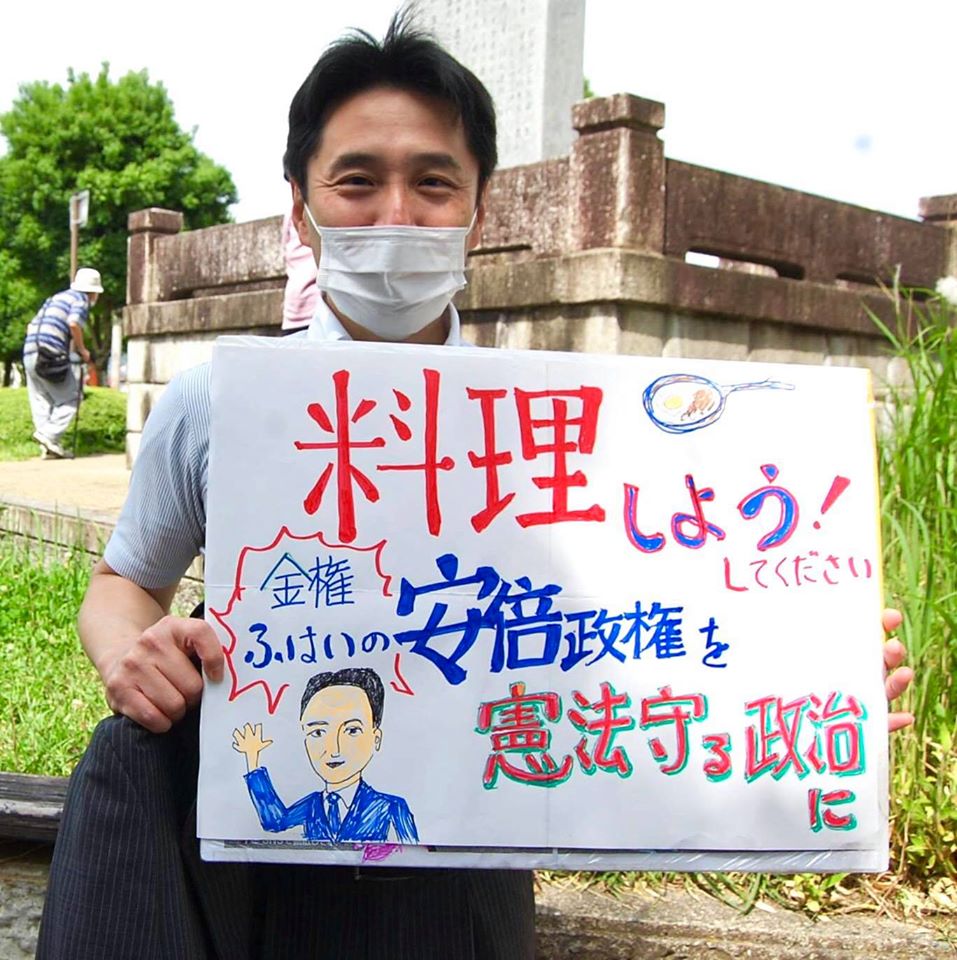 料理
しよう!
してください
金権
ふはいの安倍政権を
憲法守る政治
に